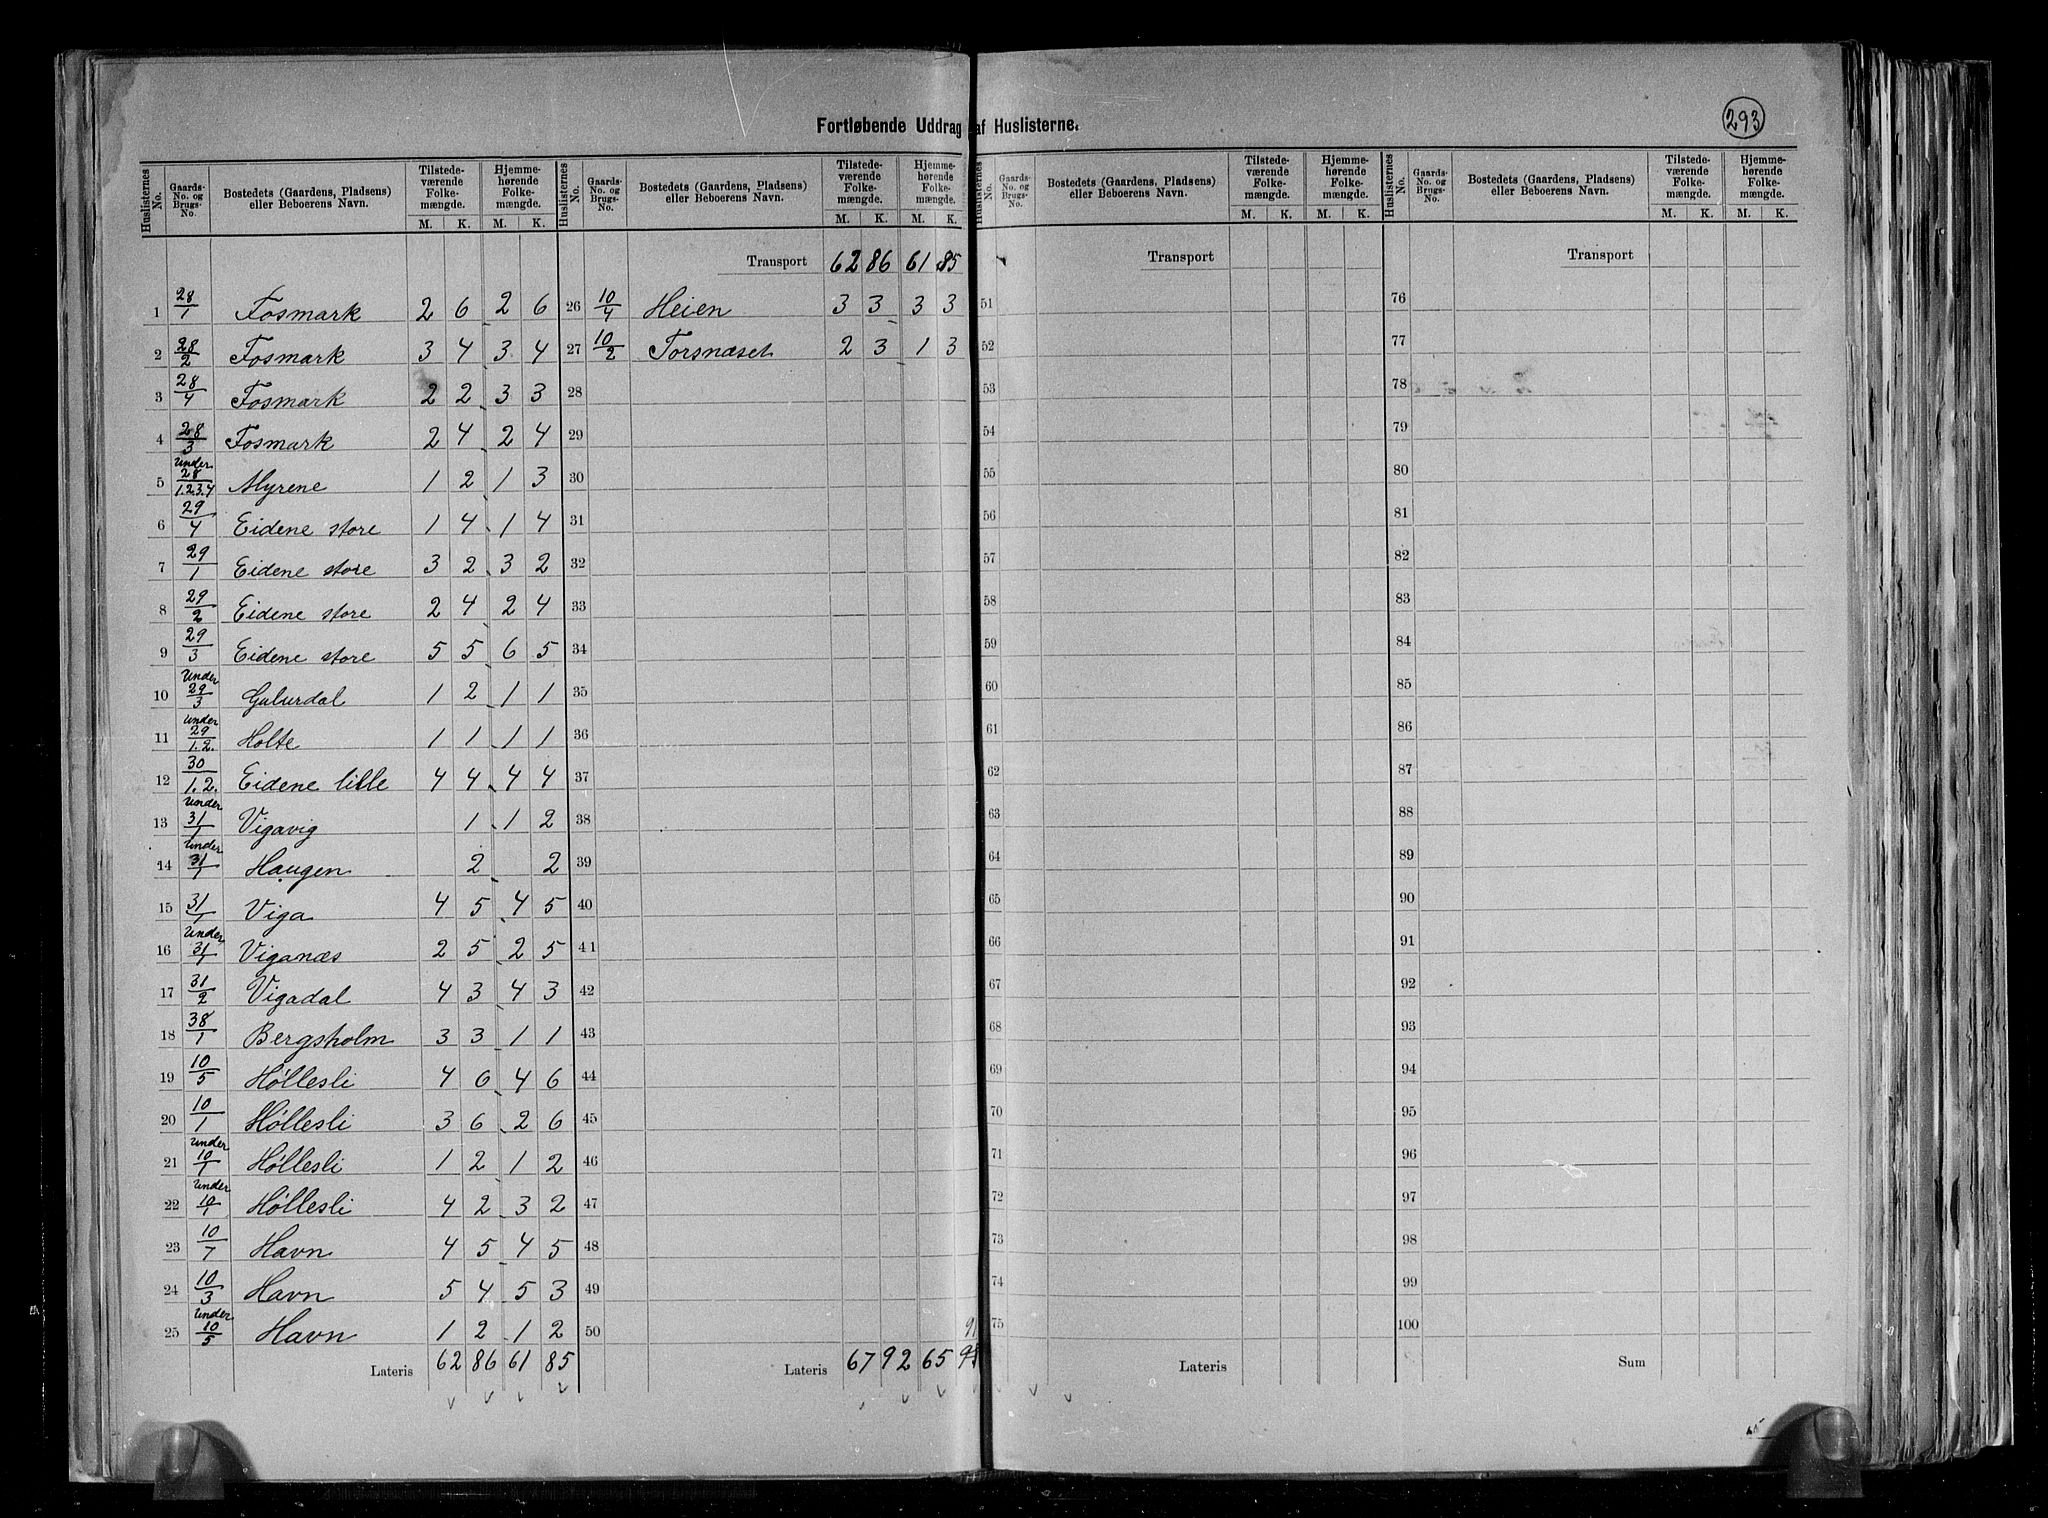 293
Fortløbende Uddrag af Huslisterne.
Huslisternes No. Gaards-No. og Brugs-No. Bostedets (Gaardens, Pladsens) eller Beboerens Navn. Tilstedeværende Folkemængde. M. K. Hjemmehørende Folkemængde. M. K.
1 28/1 Fosmark 2 6 2 6
2 28/2 Fosmark 3 4 3 4
3 28/4 Fosmark 2 2 3 3
4 28/3 Fosmark 2 4 2 4
5 Under 28/1.2.3.4 Myrene 1 2 1 3
6 29/4 Eidene store 1 4 1 4
7 29/1 Eidene store 3 2 3 2
8 29/2 Eidene store 2 4 2 4
9 29/3 Eidene store 5 5 6 5
10 Under 29/3 1 2 1 1
11 Under 29/1.2. Holte 1 1 1 1
12 30/1.2. Eidene lille 4 4 4 4
13 Under 31/1 Vigavig 1 1 2
14 Under 31/1 Haugen 2 2
15 31/1 Viga 4 5 4 5
16 Under 31/1 Viganæs 2 5 2 5
17 31/2 Vigadal 4 3 4 3
18 38/1 Bergsholm 3 3 1 1
19 10/5 Høllesli 4 6 4 6
20 10/1 Høllesli 3 6 2 6
21 Under 10/1 Høllesli 1 2 1 2
22 Under 10/1 Høllesli 4 2 3 2
23 10/7 Havn 4 5 4 5
24 10/3 Havn 5 4 5 3
25 Under 10/5 Havn 1 2 1 2
Lateris 62 86 61 85
Huslisternes No. Gaards-No. og Brugs-No. Bostedets (Gaardens, Pladsens) eller Beboerens Navn. Tilstedeværende Folkemængde. M. K. Hjemmehørende Folkemængde. M. K.
Transport 62 86 61 85
26 10/4 Heien 3 3 3 3
27 10/2 Torsnæset 2 3 1 3
28
29
30
31
32
33
34
35
36
37
38
39
40
41
42
43
44
45
46
47
48
49
50
91
Lateris 67 92 65
Huslisternes No. Gaards-No. og Brugs-No. Bostedets (Gaardens, Pladsens) eller Beboerens Navn. Tilstedeværende Folkemængde. M. K. Hjemmehørende Folkemængde. M. K.
Transport
51
52
53
54
55
56
57
58
59
60
61
62
63
64
65
66
67
68
69
70
71
72
73
74
75
Lateris
Huslisternes No. Gaards-No. og Brugs-No. Bostedets (Gaardens, Pladsens) eller Beboerens Navn. Tilstedeværende Folkemængde. M. K. Hjemmehørende Folkemængde. M. K.
Transport
76
77
78
79
80
81
82
83
84
85
86
87
88
89
90
91
92
93
94
95
96
97
98
99
100
Sum